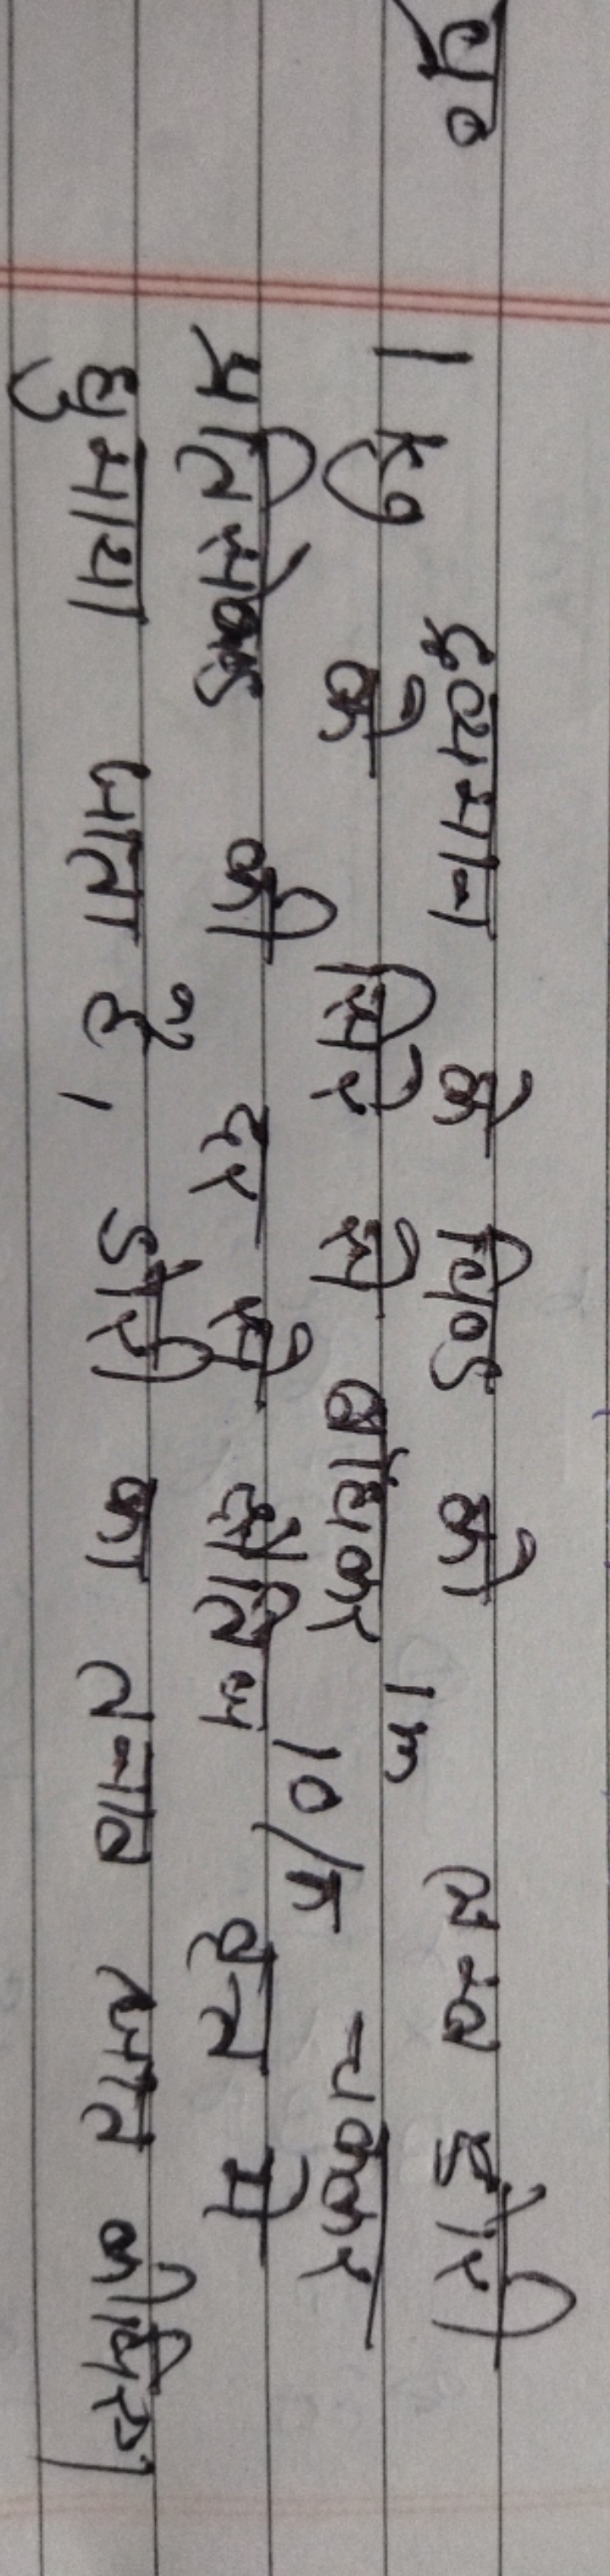 प्र०
1 kg द्रव्यमान के पिण्ड को 1m लम्ब डोरी
के सिरे से बाँधकर 10/π चक्कर
प्रतिसेकण्ड की दर से क्षैतिज वृत्त मे
घुमाया जाता है, डोरी का तनाव ज्ञात कीजिए।